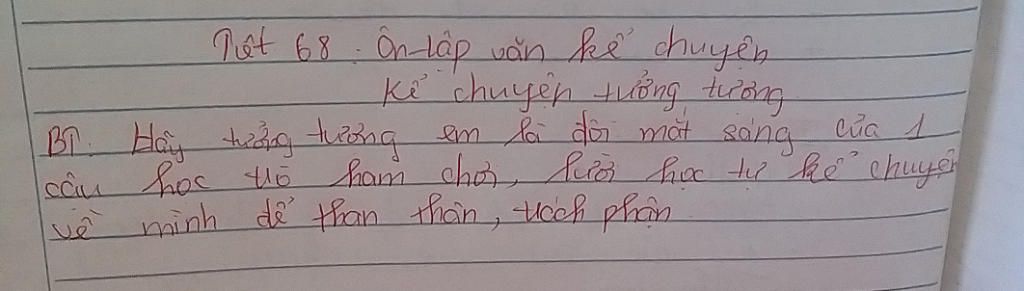 Tiết 68: Ôn-tập văn kể chuyện
Kể chuyện tưởng tượng
BT. Hãy tưởng tượng em là đôi mắt sáng của 1
cậu học trò ham chơi, lười học tự kể chuyện
về mình để than thân, trách phận